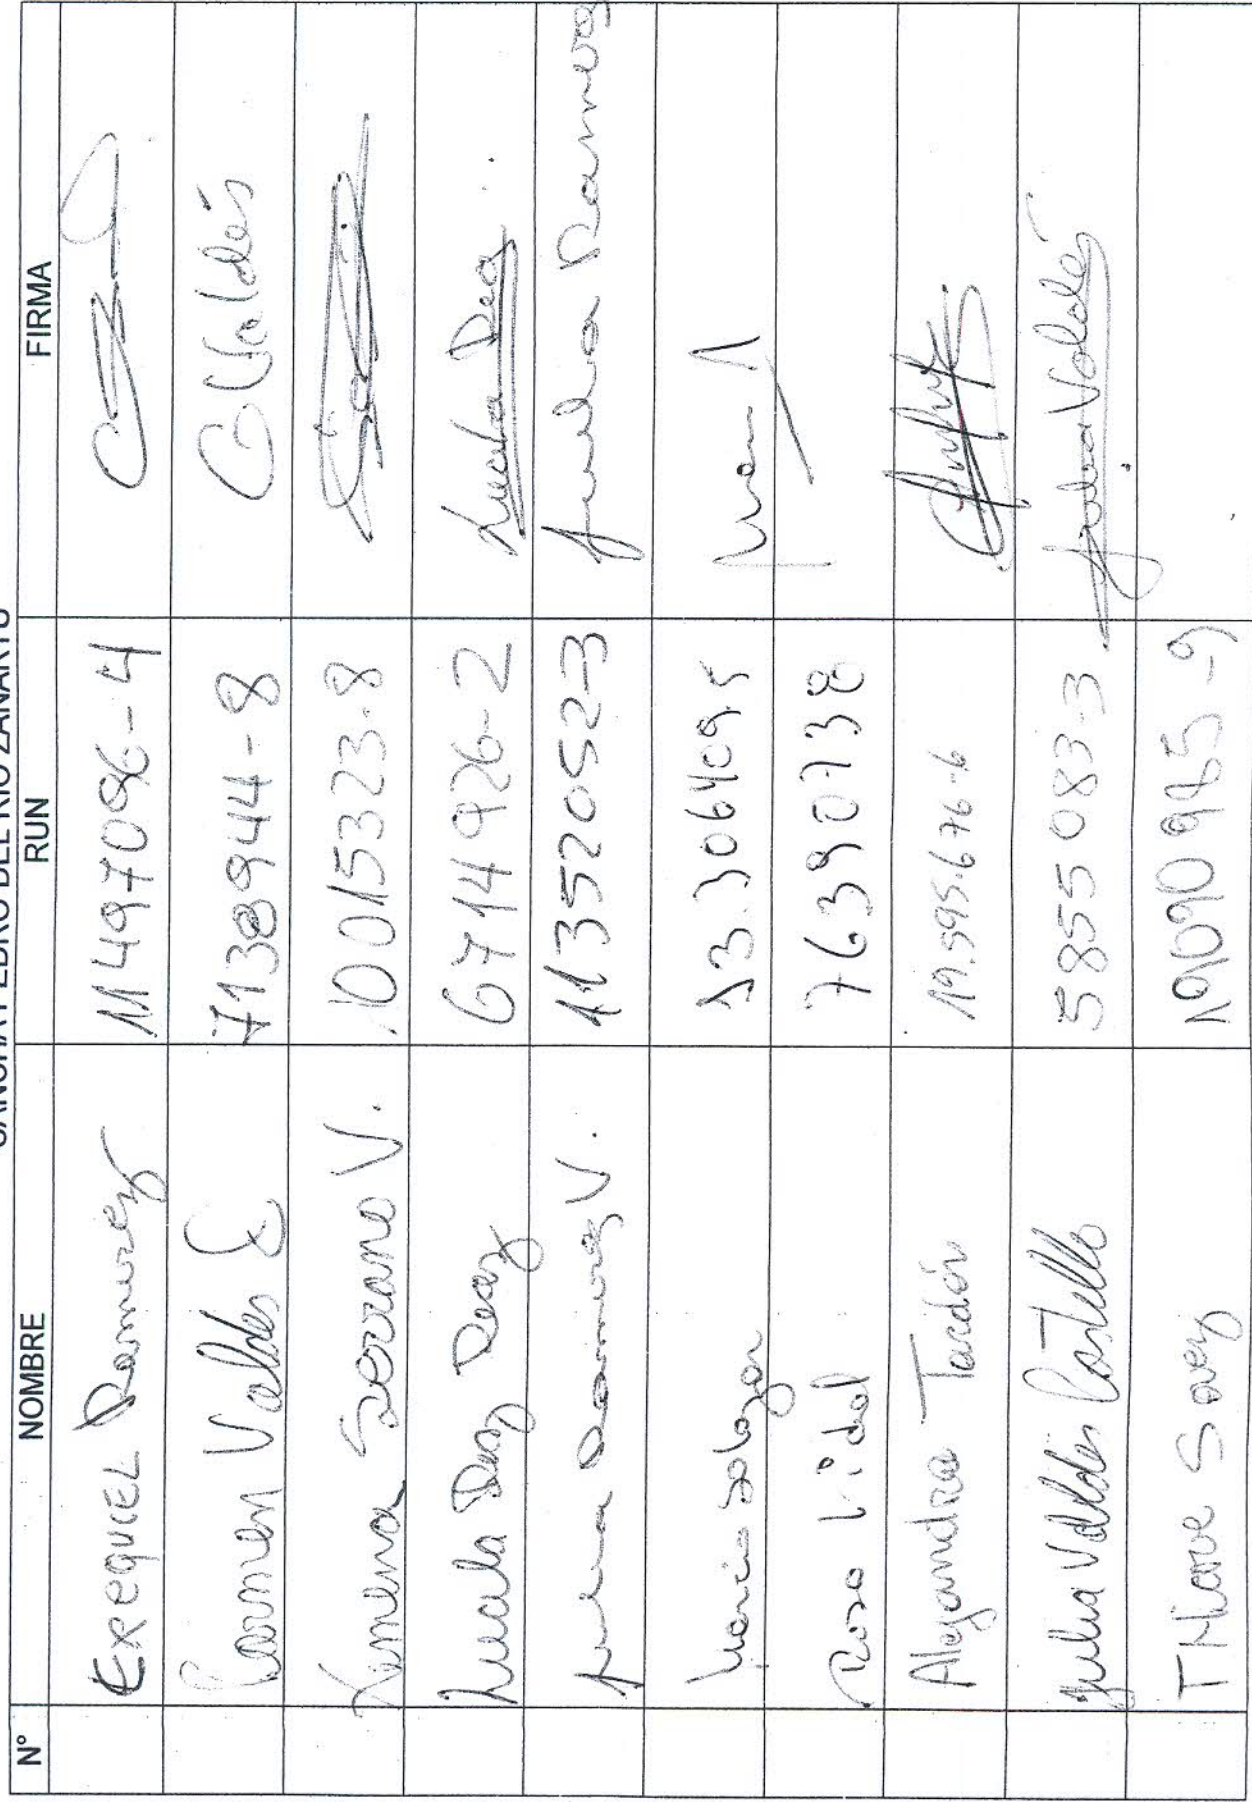 PEDRO DEL RIO ZAÑARTU
N° NOMBRE RUN FIRMA
Exequiel Ramirez 11497096-4
Carmen Valdes C 7138944-8 CValdés
Ximena Serrano V. 10015323-8
Lucila Diaz Diaz 6714926-2 Lucila Diaz
Julia Ramirez V. 11352052-3 Julia Ramirez
Maria Salazar 13.306409.5
Rosa Vidal 76390738
Alejandra Tardón 19.595.676-6
Julia Valdés Castillo 5855083-3 Julia Valdés
19090985-9